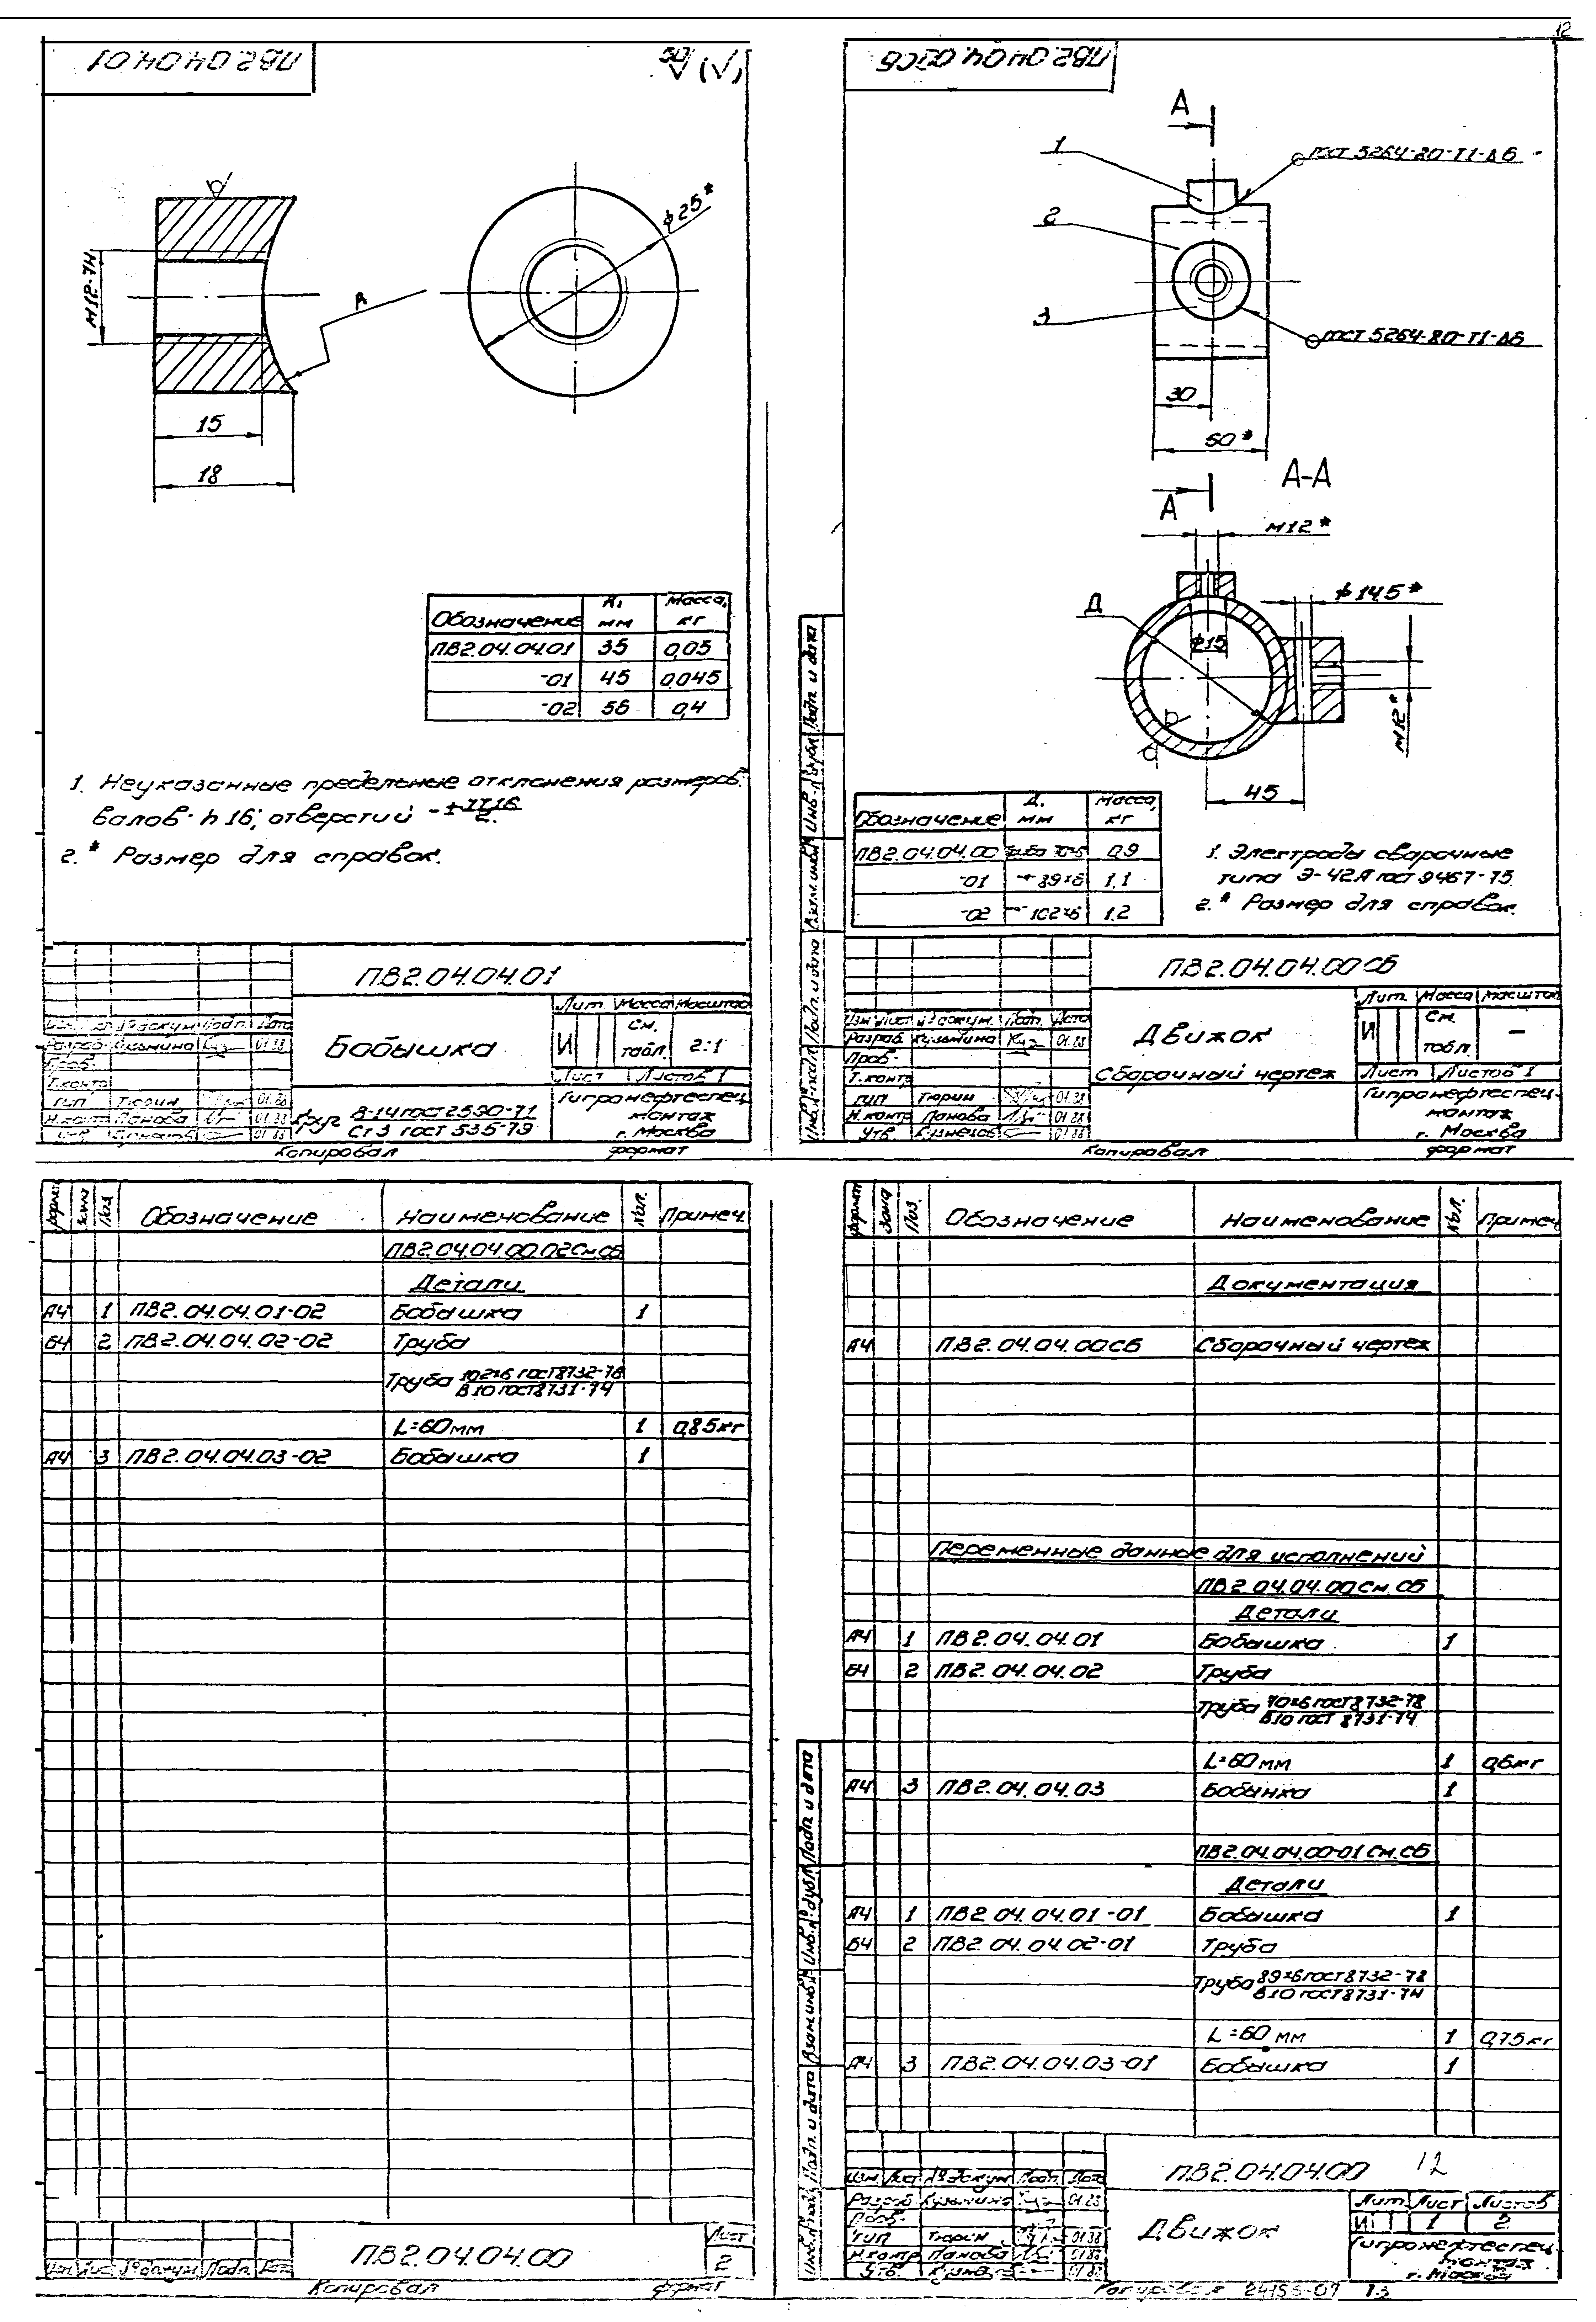 12
ПВ2.04.04.01
50 (√)
М12-7Н
R
φ25*
15
18
Обозначение R, мм Масса, кг
ПВ2.04.04.01 35 0,05
-01 45 0,045
-02 56 0,4
1. Неуказанные предельные отклонения размеров:
валов- h 16; отверстий - ± IT16/2.
2.* Размер для справок.
ПВ2.04.04.01
Бобышка
Лит. Масса Масштаб
И См. табл. 2:1
Лист Листов 1
Изм. Лист № докум. Подп. Дата
Разраб. Кузьмина 01.88
Проб.
Т.контр
ГИП Тюрин 01.88
Н.контр Панова 01.88
Утв. Кузнецов 01.88
Круг В-14 ГОСТ 2590-71
Ст3 ГОСТ 535-79
Гипронефтеспец-
монтаж
г. Москва
Копировал формат
ПВ2.04.04.00СБ
А
1
ГОСТ 5264-80-Т1-Δ6
2
3
ГОСТ 5264-80-Т1-Δ6
30
60*
А
А-А
М12*
Д
φ14,5*
φ15
М12*
45
Обозначение Д, мм Масса, кг
ПВ2.04.04.00 Труба 70×6 0,9
-01 -"- 89×6 1,1
-02 -"- 102×6 1,2
1. Электроды сварочные
типа Э-42А ГОСТ 9467-75.
2.* Размер для справок.
Инв.№ подл. Подп. и дата Взам.инв.№ Инв.№ дубл. Подп. и дата
ПВ2.04.04.00СБ
Движок
Сборочный чертеж
Лит. Масса Масштаб
И См. табл. —
Лист Листов 1
Изм. Лист № докум. Подп. Дата
Разраб. Кузьмина 01.88
Проб.
Т.контр
ГИП Тюрин 01.88
Н.контр Панова 01.88
Утв. Кузнецов 01.88
Гипронефтеспец-
монтаж
г. Москва
Копировал формат
Формат Зона Поз. Обозначение Наименование Кол. Примеч.
ПВ2.04.04.00.02См.СБ
Детали
А4 1 ПВ2.04.04.01-02 Бобышка 1
Б4 2 ПВ2.04.04.02-02 Труба
Труба 102×6 ГОСТ 8732-78
В10 ГОСТ 8731-74
L=60мм 1 0,85кг
А4 3 ПВ2.04.04.03-02 Бобышка 1
Изм. Лист № докум. Подп. Дата
ПВ2.04.04.00
Лист
2
Копировал формат
Формат Зона Поз. Обозначение Наименование Кол. Примеч
Документация
А4 ПВ2.04.04.00СБ Сборочный чертеж
Переменные данные для исполнений
ПВ2.04.04.00 См.СБ
Детали
А4 1 ПВ2.04.04.01 Бобышка 1
Б4 2 ПВ2.04.04.02 Труба
Труба 70×6 ГОСТ 8732-78
В10 ГОСТ 8731-74
L=60 мм 1 0,6кг
А4 3 ПВ2.04.04.03 Бобышка 1
ПВ2.04.04.00-01 См.СБ
Детали
А4 1 ПВ2.04.04.01-01 Бобышка 1
Б4 2 ПВ2.04.04.02-01 Труба
Труба 89×6 ГОСТ 8732-78
В10 ГОСТ 8731-74
L=60 мм 1 0,75кг
А4 3 ПВ2.04.04.03-01 Бобышка 1
Инв.№ подл. Подп. и дата Взам.инв.№ Инв.№ дубл. Подп. и дата
ПВ2.04.04.00 12
Изм. Лист № докум Подп. Дата
Разраб Кузьмина 01.88
Проб.
ГИП Тюрин 01.88
Н.контр Панова 01.88
Утв. 01.88
Движок
Лит. Лист Листов
И 1 2
Гипронефтеспец-
монтаж
г. Москва
Копировал 24155-01 13